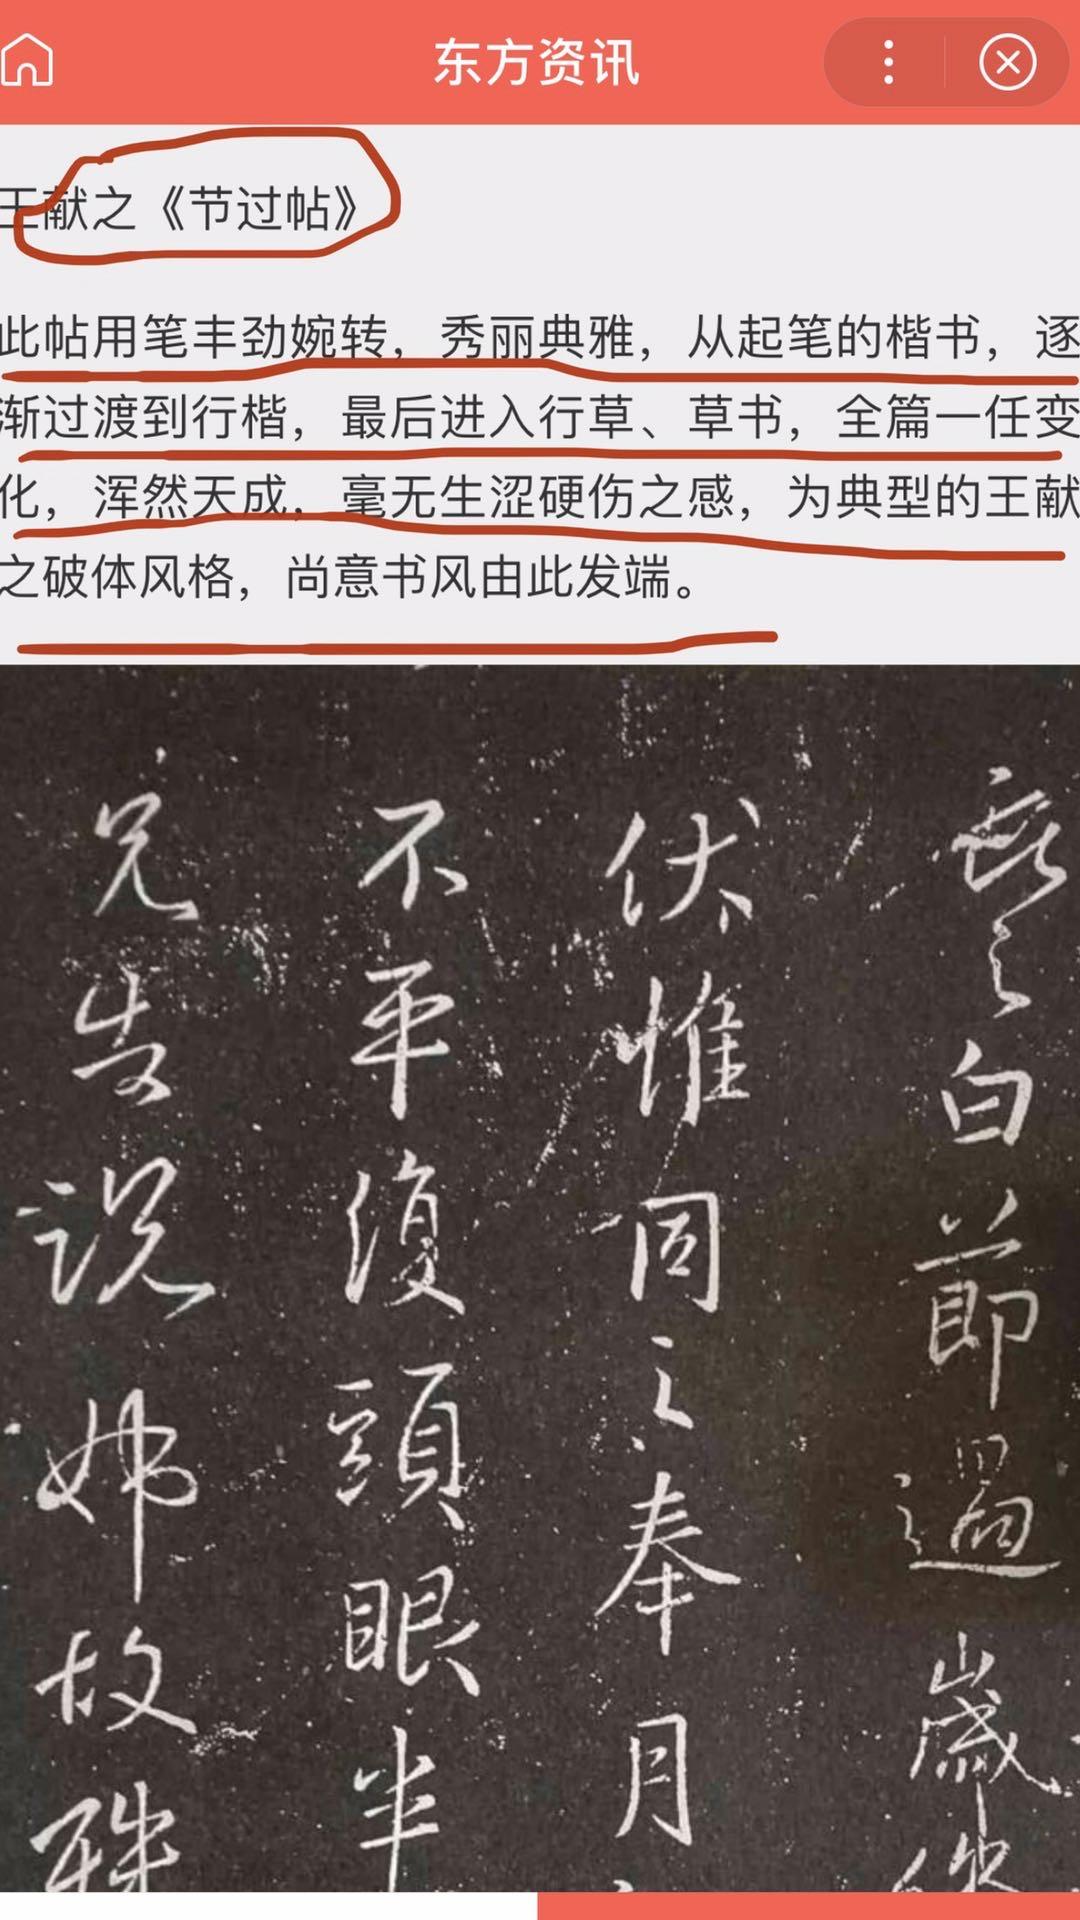 东方资讯
王献之《节过帖》
此帖用笔丰劲婉转，秀丽典雅，从起笔的楷书，逐
渐过渡到行楷，最后进入行草、草书，全篇一任变
化，浑然天成，毫无生涩硬伤之感，为典型的王献
之破体风格，尚意书风由此发端。
之白節過歲
伏惟同之奉月
不平復頭眼半
兄告說姊故殊